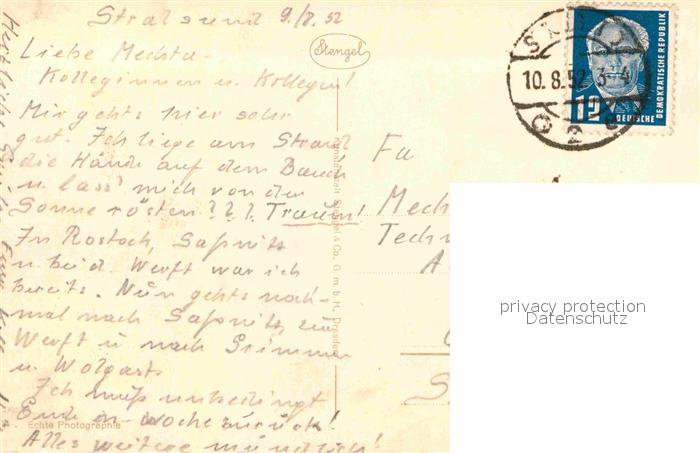 Stralsund 9./8. 52
Liebe Mechta-
Kolleginnen u. Kollegen!
Mir gehts hier sehr
gut. Ich liege am Strand
die Hände auf dem Bauch
u. lass' mich von der
Sonne rösten ? ? ? Traum!
In Rostock, Saßnitz
u. bei d. Werft war ich
bereits. Nun gehts noch-
mal nach Saßnitz, zur
Werft u. nach Grimmen
u. Wolgast.
Ich muß unbedingt
Ende d. Woche zurück!
Alles weitere mündlich!
Echte Photographie
Stengel
Stengel & Co. G m b H, Dresden
10.8.52.3-4
12
DEUTSCHE
DEMOKRATISCHE REPUBLIK
Fa
Mech
Techn
A
privacy protection
Datenschutz